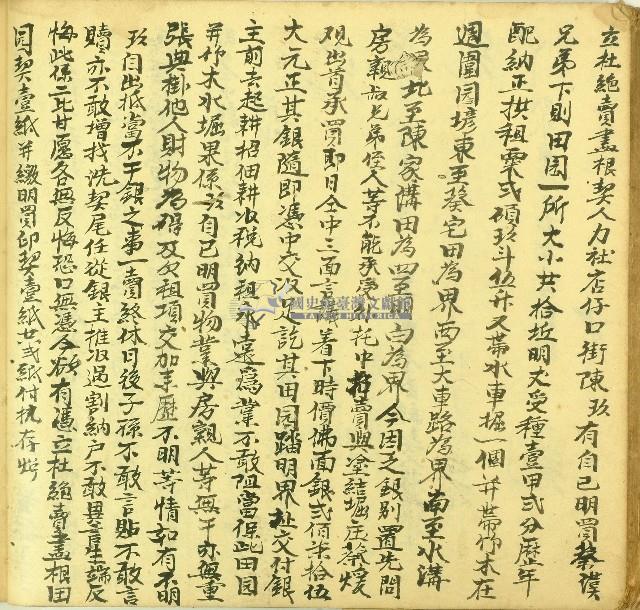 立杜絶賣盡根契人力社店仔口街陳玖有自己明買蔡濮
兄弟下則田园一所大小共拾坵明丈受種壹甲弍分歷年
配納正拱租粟弍碩玖斗伍升又帶水車堀一個并帶竹木在
週圍园墘東至葵宅田為界西至大車路為界南至水溝
為界北至陳家溝田為四至明白為界今因乏銀別置先問
房親叔兄弟侄人等不能承受托中將賣與塗結堀庄蔡煖
觀出首承買即日仝中三面言議着下時價佛面銀弍佰柒拾伍
大元正其銀隨即憑中交收足訖其田园踏明界址交付銀
主前去起耕招佃耕收税納租永遠為業不敢阻當保此田园
并竹木水堀果係玖自己明買物業與房親人等無干亦無重
張典掛他人財物為碍及欠租項交加来歷不明等情如有不明
玖自出抵當不干銀主之事一賣終休日後子孫不敢言貼不敢言
贖亦不敢增找洗契尾任從銀主推收過割納戶不敢異言生端反
悔此係二比甘愿各無反悔恐口無憑今欲有憑立杜絶賣盡根田
园契壹紙并繳明買印契壹紙共弍紙付执存炤
國史館臺灣文獻館
TAIWAN HISTORICA